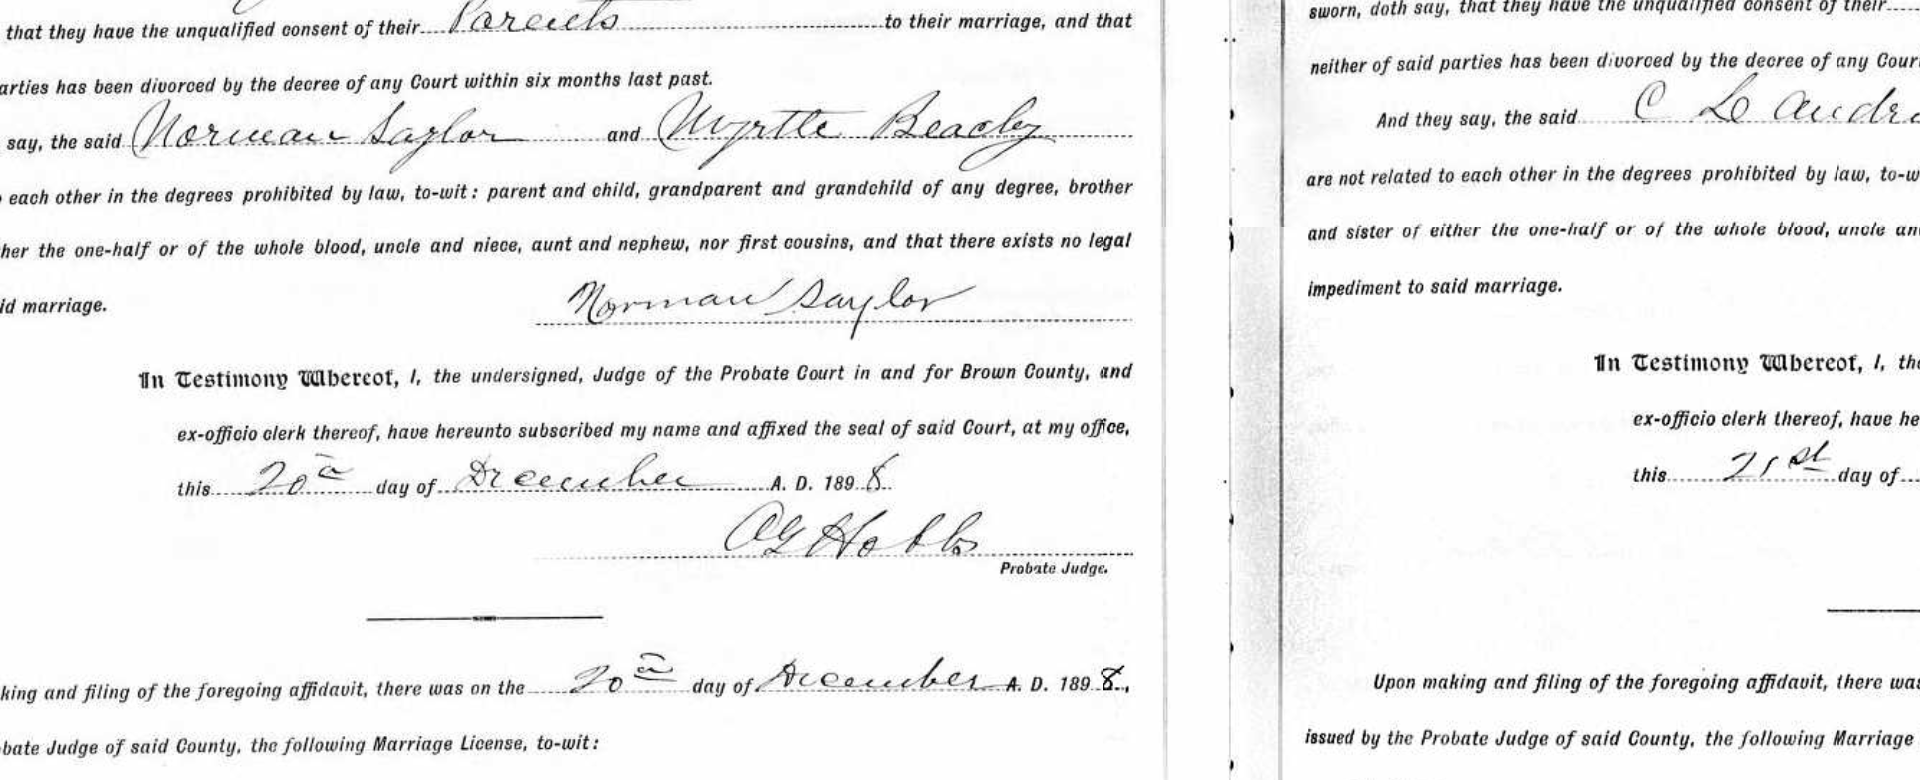 that they have the unqualified consent of their Parents to their marriage, and that
arties has been divorced by the decree of any Court within six months last past.
say, the said Norman Saylor and Myrtle Beagley
each other in the degrees prohibited by law, to-wit: parent and child, grandparent and grandchild of any degree, brother
her the one-half or of the whole blood, uncle and niece, aunt and nephew, nor first cousins, and that there exists no legal
id marriage.
Norman Saylor
In Testimony Whereof, I, the undersigned, Judge of the Probate Court in and for Brown County, and
ex-officio clerk thereof, have hereunto subscribed my name and affixed the seal of said Court, at my office,
this 20th day of December A. D. 1898.
Hobbs
Probate Judge.
king and filing of the foregoing affidavit, there was on the 20th day of December A. D. 1898.,
bate Judge of said County, the following Marriage License, to-wit:
sworn, doth say, that they have the unqualified consent of their
neither of said parties has been divorced by the decree of any Cour
And they say, the said C
are not related to each other in the degrees prohibited by law, to-w
and sister of either the one-half or of the whole blood, uncle an
impediment to said marriage.
In Testimony Whereof, I, the
ex-officio clerk thereof, have he
this 21st day of
Upon making and filing of the foregoing affidavit, there was
issued by the Probate Judge of said County, the following Marriage